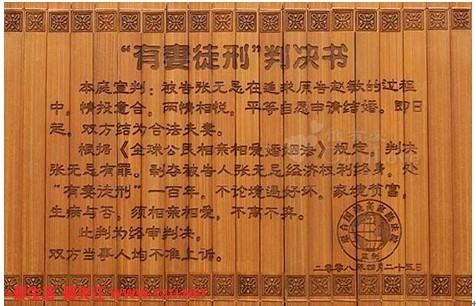 “有妻徒刑”判决书
本庭宣判：被告张无忌在追求原告赵敏的过程
中，情投意合，两情相悦，平等自愿申请结婚。即日
起，双方结为合法夫妻。
根据《全球公民相亲相爱婚姻法》规定，判决
张无忌有罪。剥夺被告人张无忌经济权利终身，处
“有妻徒刑”一百年，不论境遇好坏，家境贫富，
生病与否，须相亲相爱，不离不弃。
此判为终审判决。
双方当事人均不准上诉。
二零零八年四月二十五日